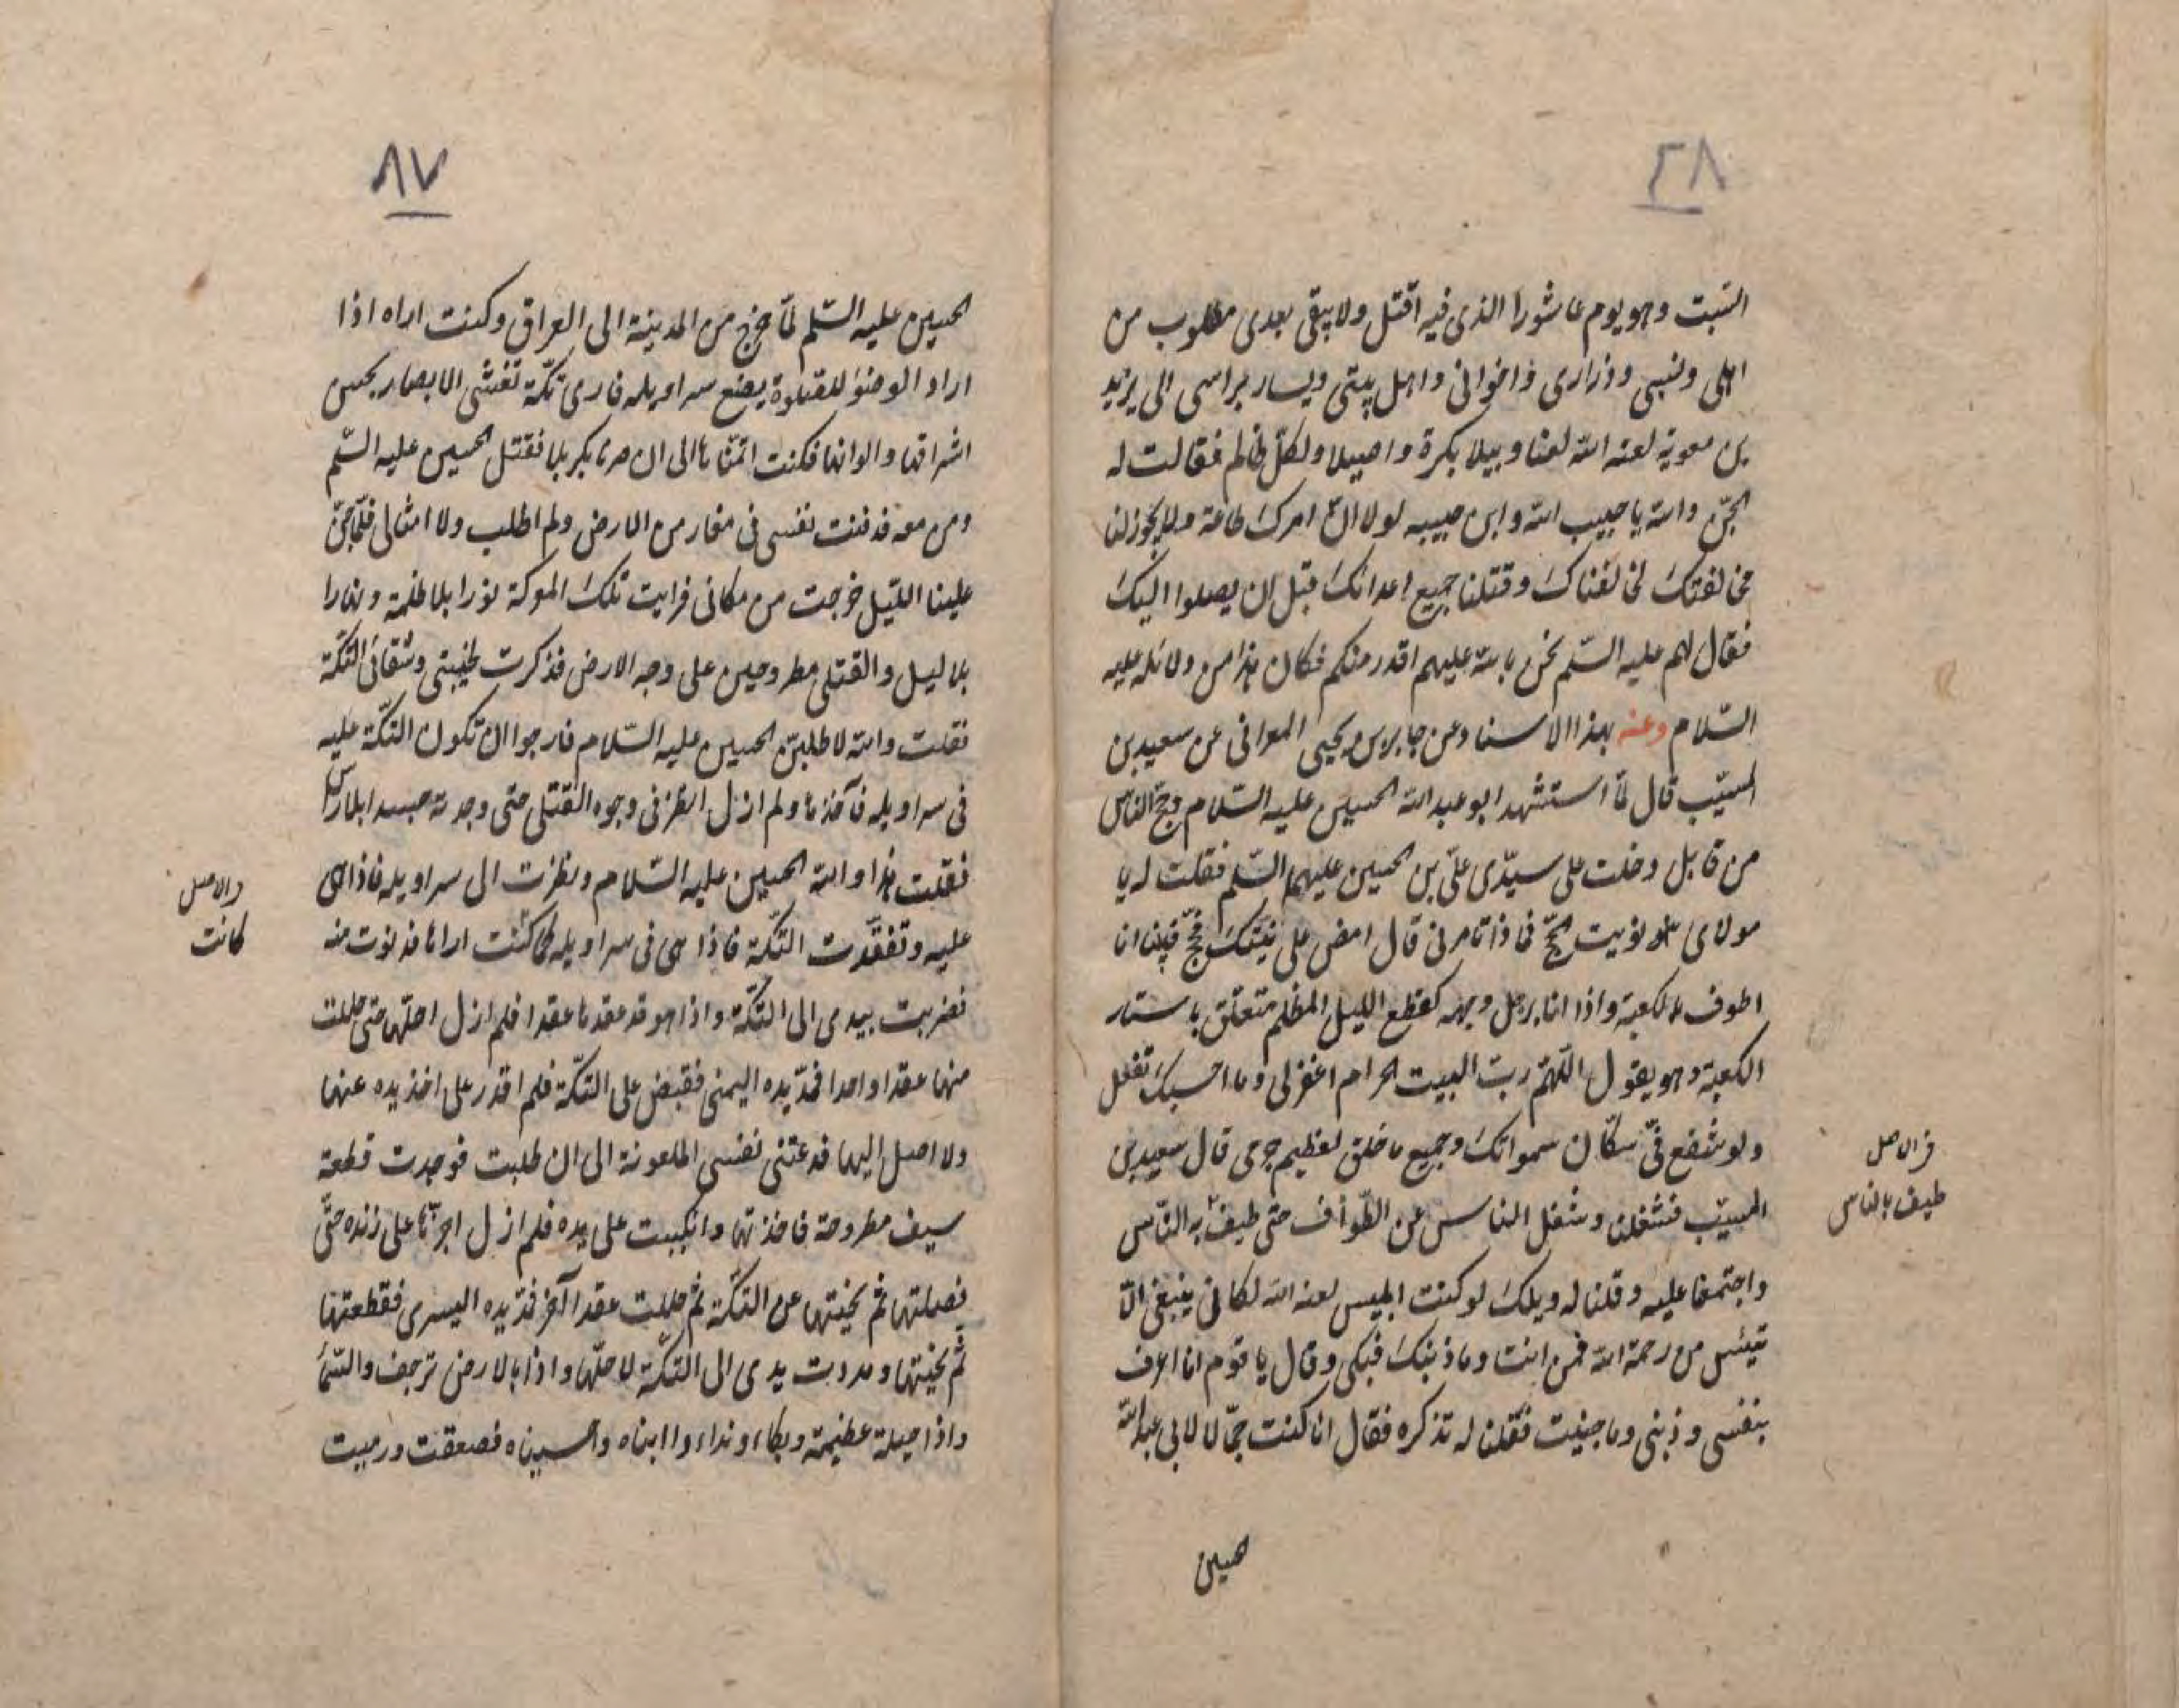 ٤٨
السّبت وهو يوم عاشورا الذى فيه اقتل ولا يبقى بعدى مطلوب من
اهلى ونسبى وذرارى واخوانى واهل بيتى ويسار براسى الى يزيد
بن معوية لعنه الله لعنا وبيلا بكرة واصيلا ولكلّ ظالم فقالت له
الجنّ والله يا حبيب الله وابن حبيبه لولا انّ امرك طاعة ولا يجوز لنا
مخالفتك لخالفناك وقتلنا جميع اعدائك قبل ان يصلوا اليك
فقال لهم عليه السّلم نحن بالله عليهم اقدر منكم فكان هذا من دلائله عليه
السّلام وعنه بهذا الاسناد عن جابر بن يحيى المعرانى عن سعيد بن
المسيّب قال لمّا استشهد ابو عبد الله الحسين عليه السّلام وحجّ النّاس
من قابل دخلت على سيّدى علىّ بن الحسين عليهما السّلم فقلت له يا
مولاى نويت الحجّ فماذا تامرنى قال امض على نيّتك فحجّ فبينا انا
اطوف بالكعبة واذا انا برجل وجهه كقطع الليل المظلم متعلّق باستار
الكعبة وهو يقول اللّهمّ ربّ البيت الحرام اغفر لى وما احسبك تفعل
ولو شفع فىّ سكّان سمواتك وجميع ما خلق لعظيم جرمى قال سعيد بن
المسيّب فشغلنا وشغل الناس عن الطّواف حتّى طيف به النّاس
واجتمعنا عليه وقلنا له ويلك لو كنت ابليس لعنه الله لكان ينبغى الّا
تيئس من رحمة الله فمن انت وما ذنبك فبكى وقال يا قوم انا اعرف
بنفسى وذنبى وما جنيت فقلنا له تذكره فقال انا كنت جمّالا لابى عبد الله
الحسين
فى الاصل
طيف بالناس
٨٧
الحسين عليه السّلم لمّا خرج من المدينة الى العراق وكنت اراه اذا
اراد الوضوء للصّلوة يضع سراويله فارى تكّة تغشى الابصار بحسن
اشراقها والوانها فكنت اتمنّاها الى ان صرنا بكربلا فقتل الحسين عليه السّلم
ومن معه فدفنت نفسى فى مغار من الارض ولم اطلب ولا امثالى فلمّا جنّ
علينا اللّيل خرجت من مكانى فرايت تلك المعركة نورا بلا ظلمة ونهارا
بلا ليل والقتلى مطروحين على وجه الارض فذكرت لخبثى وشقائى التكّة
فقلت والله لاطلبنّ الحسين عليه السّلام فارجو ان تكون التكّة عليه
فى سراويله فآخذها ولم ازل انظر فى وجوه القتلى حتى وجدته جسدا بلا راس
فقلت هذا والله الحسين عليه السّلام ونظرت الى سراويله فاذا هى
عليه وتفقّدت التكّة فاذا هى فى سراويله كما كنت اراها فدنوت منه
فضربت بيدى الى التكّة واذا هو قد عقدها عقدا فلم ازل احلّها حتى حللت
منها عقدا واحدا فمدّ يده اليمنى فقبض على التكّة فلم اقدر على اخذ يده عنها
ولا اصل اليها فدعتنى نفسى الملعونة الى ان طلبت فوجدت قطعة
سيف مطروحة فاخذتها وانكببت على يده فلم ازل اجزّها على زنده حتّى
فصلتها ثم نحّيتها عن التكّة ثم حللت عقدا آخر فمدّ يده اليسرى فقطعتها
ثم نحّيتها ومددت يدى الى التكّة لاحلّها واذا بالارض ترجف والسّماء
واذا جبلة عظيمة وبكاء ونداء واابناه واحسيناه فصعقت ورميت
والاصل
كانت